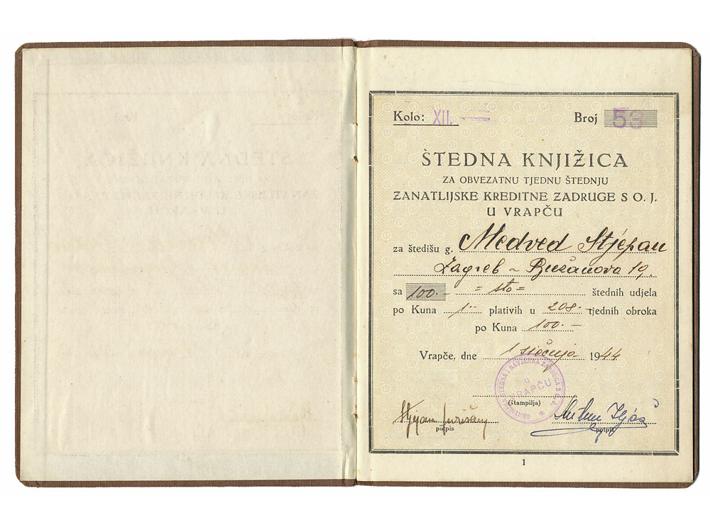 Kolo: XII. Broj 53
ŠTEDNA KNJIŽICA
ZA OBVEZATNU TJEDNU ŠTEDNJU
ZANATLIJSKE KREDITNE ZADRUGE S O. J.
U VRAPČU
za štedišu g. Medved Stjepan
Zagreb - 19.
sa 100.- = sto = štednih udjela
po Kuna 1.- plativih u 208.- tjednih obroka
po Kuna 100.-
Vrapče, dne 1 siečnja 1944
U
VRAPČU
(štampilja)
Stjepan
potpis potpis
1